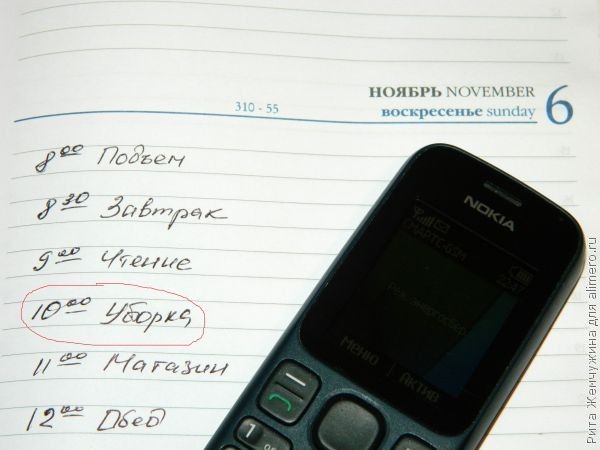 НОЯБРЬ NOVEMBER
воскресенье sunday 6
310 - 55
8 00 Подъем
8 30 Завтрак
9 00 Чтение
10 00 Уборка
11 00 Магазин
12 00 Обед
NOKIA
СМАРТС-GSM
Реж.энергосбер.
МЕНЮ АКТИВ
1
Рита Жемчужина для alimero.ru